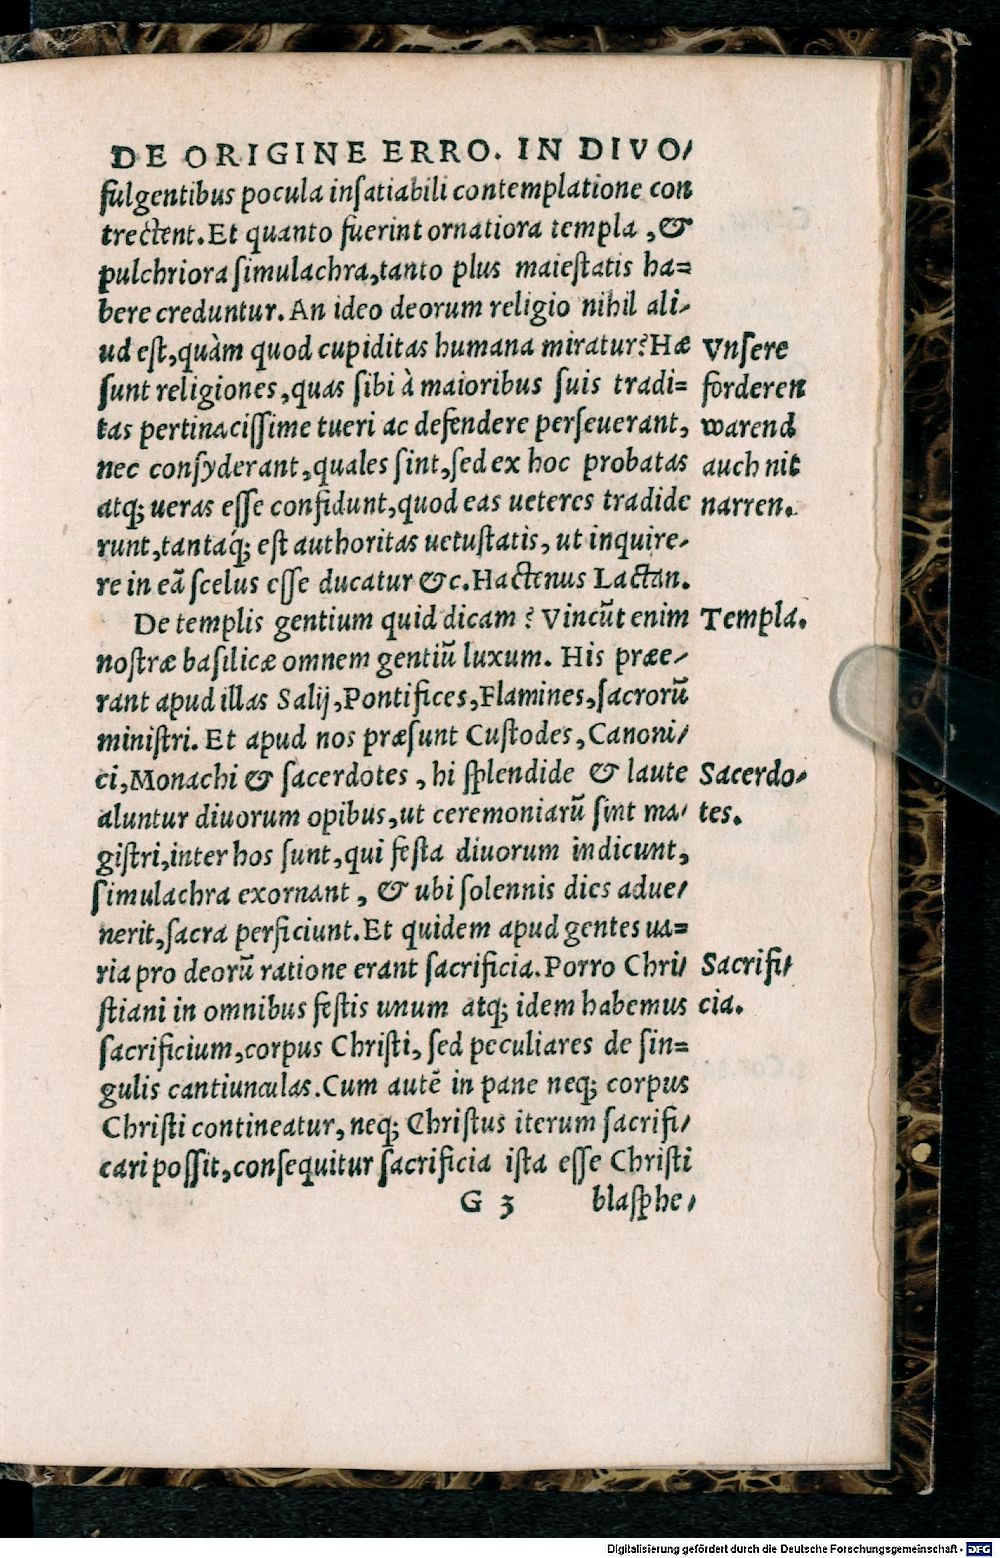 DE ORIGINE ERRO. IN DIVO/
fulgentibus pocula insatiabili contemplatione con
trectent. Et quanto fuerint ornatiora templa, &
pulchriora simulachra, tanto plus maiestatis ha=
bere creduntur. An ideo deorum religio nihil ali/
ud est, quàm quod cupiditas humana miratur? Hæ
sunt religiones, quas sibi à maioribus suis tradi=
tas pertinacissime tueri ac defendere perseuerant,
nec consyderant, quales sint, sed ex hoc probatas
atq; ueras esse confidunt, quod eas ueteres tradide
runt, tantaq́; est authoritas uetustatis, ut inquire/
re in eã scelus esse ducatur &c. Hactenus Lactan.
De templis gentium quid dicam? Vincũt enim
nostræ basilicæ omnem gentiũ luxum. His præe/
rant apud illas Salij, Pontifices, Flamines, sacrorũ
ministri. Et apud nos præsunt Custodes, Canoni/
ci, Monachi & sacerdotes, hi splendide & laute
aluntur diuorum opibus, ut ceremoniarũ sint ma/
gistri, inter hos sunt, qui festa diuorum indicunt,
simulachra exornant, & ubi solennis dies adue/
nerit, sacra perficiunt. Et quidem apud gentes ua=
ria pro deorũ ratione erant sacrificia. Porro Chri/
stiani in omnibus festis unum atq; idem habemus
sacrificium, corpus Christi, sed peculiares de sin=
gulis cantiunculas. Cum autẽ in pane neq; corpus
Christi contineatur, neq; Christus iterum sacrifi/
cari possit, consequitur sacrificia ista esse Christi
G 3 blasphe/
Vnsere
forderen
warend
auch nit
narren.
Templa.
Sacerdo/
tes.
Sacrifi/
cia.
Digitalisierung gefördert durch die Deutsche Forschungsgemeinschaft - DFG